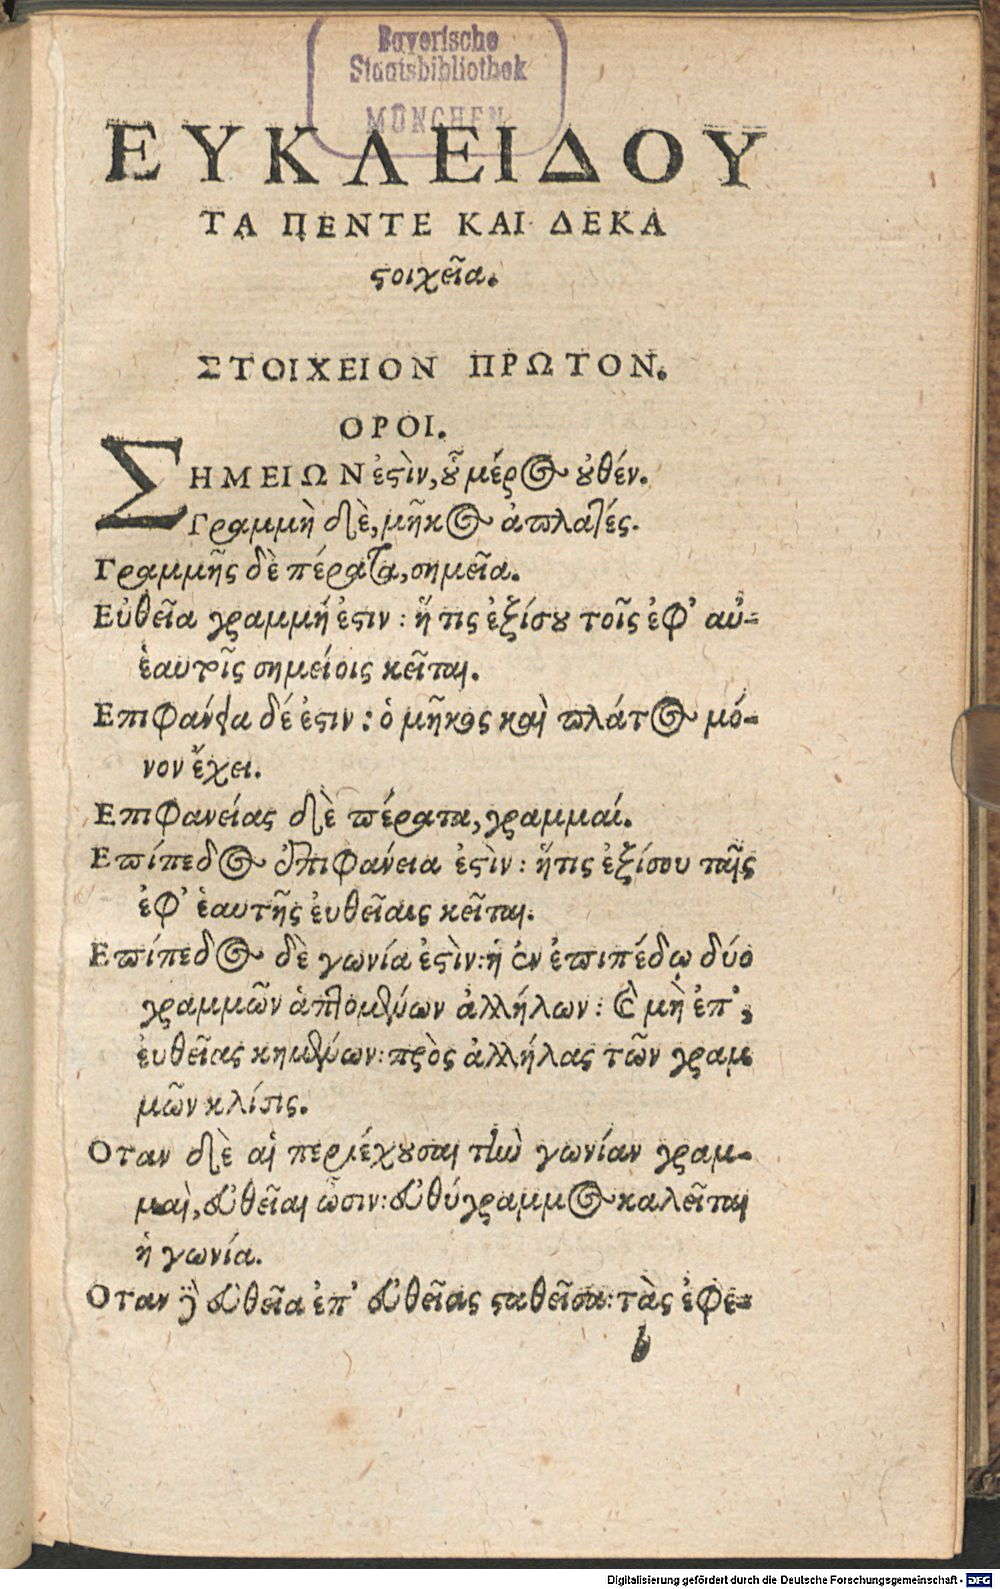 Bayerische
Staatsbibliothek
MÜNCHEN
ΕΥΚΛΕΙΔΟΥ
ΤΑ ΠΕΝΤΕ ΚΑΙ ΔΕΚΑ
ϛοιχεῖα.
ΣΤΟΙΧΕΙΟΝ ΠΡΩΤΟΝ.
ΟΡΟΙ.
ΣΗΜΕΙΩΝ ἐϛὶν, ȣ̃ μέρος ȣ̓θέν.
Γραμμὴ δὲ, μῆκος ἀπλατές.
Γραμμῆς δὲ πέρατα, σημεῖα.
Εὐθεῖα γραμμή ἐϛιν: ἥ τις ἐξίσȣ τοῖς ἐφ' αὐ-
ἑαυτῖς σημείοις κεῖται.
Επιφάνεια δέ ἐϛιν: ὁ μῆκος καὶ πλάτος μό-
νον ἔχει.
Επιφανείας δὲ πέρατα, γραμμαί.
Επίπεδος ἐπιφάνεια ἐϛὶν: ἥτις ἐξίσου ταῖς
ἐφ' ἑαυτῆς ἐυθεῖαις κεῖται.
Επίπεδος δὲ γωνία ἐϛὶν: ἡ ἐν ἐπιπέδω δύο
γραμμῶν ἁπτομένων ἀλλήλων: καὶ μὴ ἐπ',
ἐυθεῖας κημένων: πρὸς ἀλλήλας τῶν γραμ
μῶν κλίσις.
Οταν δὲ αἱ περιέχȣσαι τὴν γωνίαν γραμ-
μαὶ, εὐθεῖαι ὦσιν: εὐθύγραμμος καλεῖται
ἡ γωνία.
Οταν δὲ εὐθεῖα ἐπ' εὐθεῖας ϛαθεῖσα: τὰς ἐφε-
b
Digitalisierung gefördert durch die Deutsche Forschungsgemeinschaft - DFG